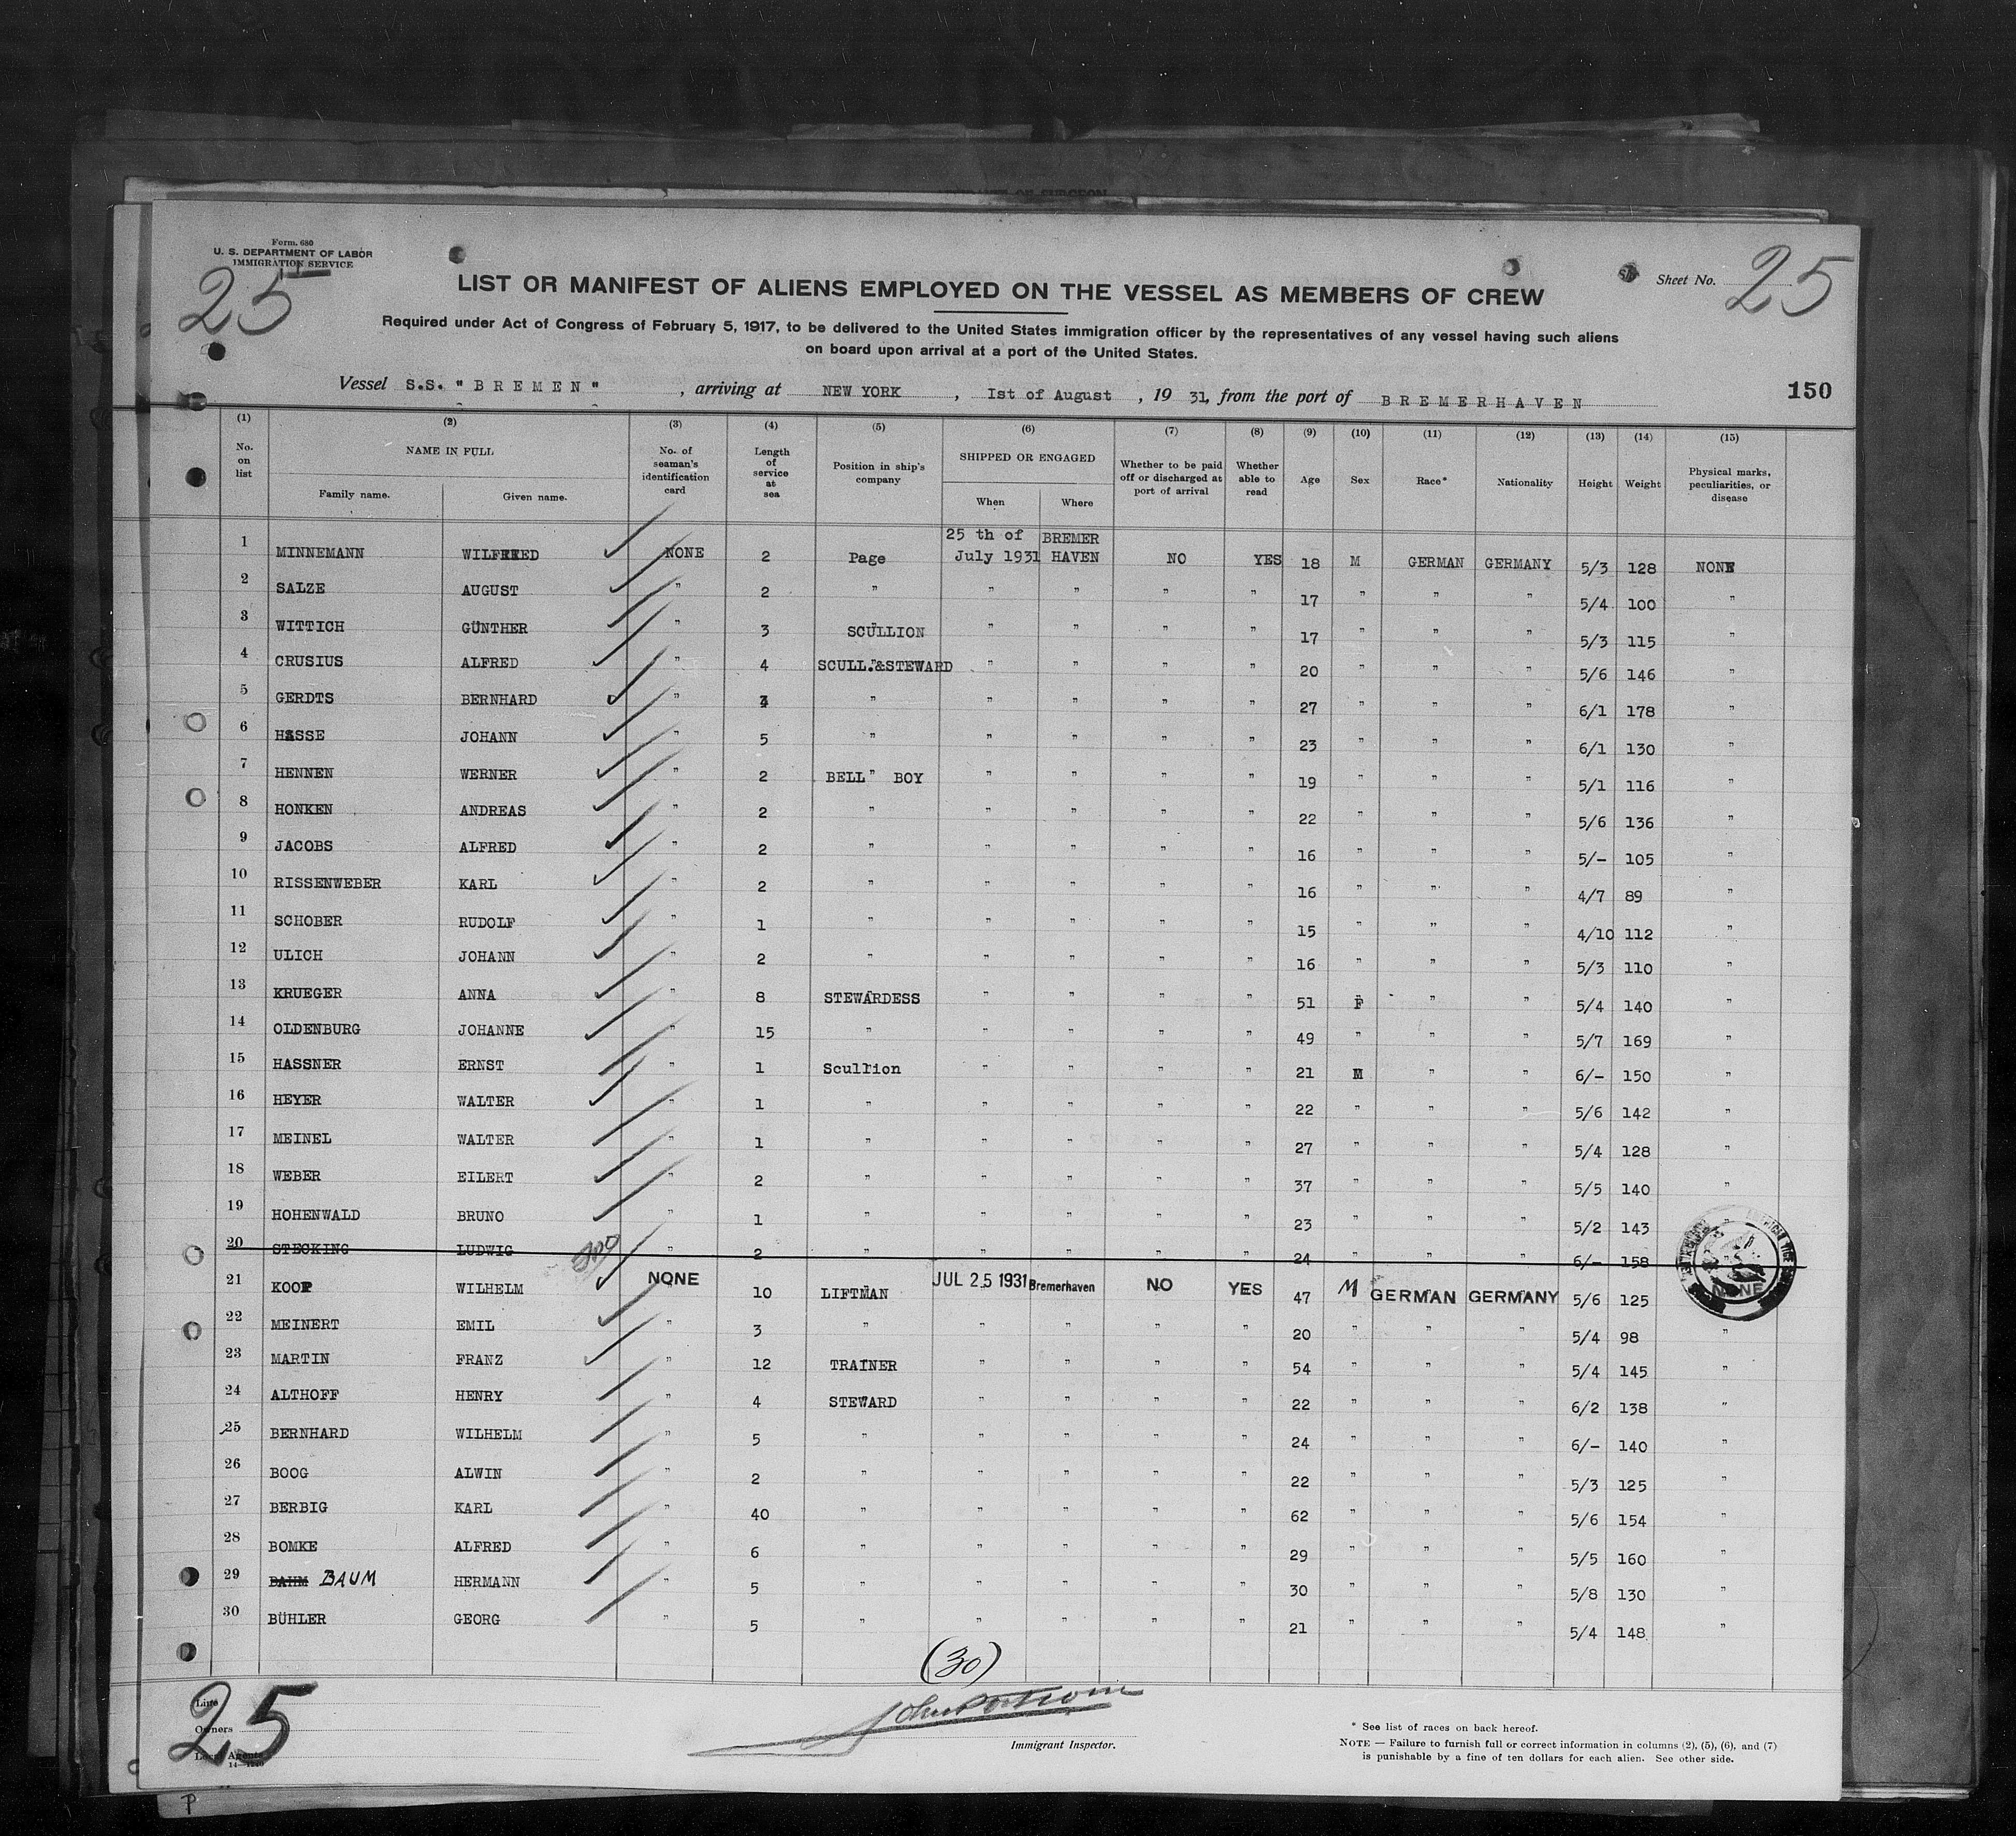 Form. 680
U. S. DEPARTMENT OF LABOR
IMMIGRATION SERVICE
25
LIST OR MANIFEST OF ALIENS EMPLOYED ON THE VESSEL AS MEMBERS OF CREW
Sheet No. 25
Required under Act of Congress of February 5, 1917, to be delivered to the United States immigration officer by the representatives of any vessel having such aliens
on board upon arrival at a port of the United States.
Vessel S.S. "BREMEN", arriving at NEW YORK, Ist of August, 1931, from the port of BREMERHAVEN
150
(1) (2) (3) (4) (5) (6) (7) (8) (9) (10) (11) (12) (13) (14) (15)
No. on list NAME IN FULL Family name. Given name. No. of seaman's identification card Length of service at sea Position in ship's company SHIPPED OR ENGAGED When Where Whether to be paid off or discharged at port of arrival Whether able to read Age Sex Race* Nationality Height Weight Physical marks, peculiarities, or disease
1 MINNEMANN WILFRIED NONE 2 Page 25 th of July 1931 BREMER HAVEN NO YES 18 M GERMAN GERMANY 5/3 128 NONE
2 SALZE AUGUST " 2 " " " " " 17 " " " 5/4 100 "
3 WITTICH GÜNTHER " 3 SCULLION " " " " 17 " " " 5/3 115 "
4 CRUSIUS ALFRED " 4 SCULL.&STEWARD " " " " 20 " " " 5/6 146 "
5 GERDTS BERNHARD " " " " " " 27 " " " 6/1 178 "
6 HASSE JOHANN " 5 " " " " " 23 " " " 6/1 130 "
7 HENNEN WERNER " 2 BELL " BOY " " " " 19 " " " 5/1 116 "
8 HONKEN ANDREAS " 2 " " " " " 22 " " " 5/6 136 "
9 JACOBS ALFRED " 2 " " " " " 16 " " " 5/- 105 "
10 RISSENWEBER KARL " 2 " " " " " 16 " " " 4/7 89 "
11 SCHOBER RUDOLF " 1 " " " " " 15 " " " 4/10 112 "
12 ULICH JOHANN " 2 " " " " " 16 " " " 5/3 110 "
13 KRUEGER ANNA " 8 STEWARDESS " " " " 51 F " " 5/4 140 "
14 OLDENBURG JOHANNE " 15 " " " " " 49 " " " 5/7 169 "
15 HASSNER ERNST " 1 Scullion " " " " 21 M " " 6/- 150 "
16 HEYER WALTER " 1 " " " " " 22 " " " 5/6 142 "
17 MEINEL WALTER " 1 " " " " " 27 " " " 5/4 128 "
18 WEBER EILERT " 2 " " " " " 37 " " " 5/5 140 "
19 HOHENWALD BRUNO " 1 " " " " " 23 " " " 5/2 143
20 STECKING LUDWIG " 2 " " " " " 24 " " " 6/- 158
21 KOOP WILHELM NONE 10 LIFTMAN JUL 25 1931 Bremerhaven NO YES 47 M GERMAN GERMANY 5/6 125 NONE
22 MEINERT EMIL " 3 " " " " " 20 " " " 5/4 98 "
23 MARTIN FRANZ " 12 TRAINER " " " " 54 " " " 5/4 145 "
24 ALTHOFF HENRY " 4 STEWARD " " " " 22 " " " 6/2 138 "
25 BERNHARD WILHELM " 5 " " " " " 24 " " " 6/- 140 "
26 BOOG ALWIN " 2 " " " " " 22 " " " 5/3 125 "
27 BERBIG KARL " 40 " " " " " 62 " " " 5/6 154 "
28 BOMKE ALFRED " 6 " " " " " 29 " " " 5/5 160 "
29 BAHM BAUM HERMANN " 5 " " " " " 30 " " " 5/8 130 "
30 BÜHLER GEORG " 5 " " " " " 21 " " " 5/4 148 "
(30)
25
Line
Owners
Local Agents
14—1240
Immigrant Inspector.
* See list of races on back hereof.
NOTE — Failure to furnish full or correct information in columns (2), (5), (6), and (7)
is punishable by a fine of ten dollars for each alien. See other side.
P